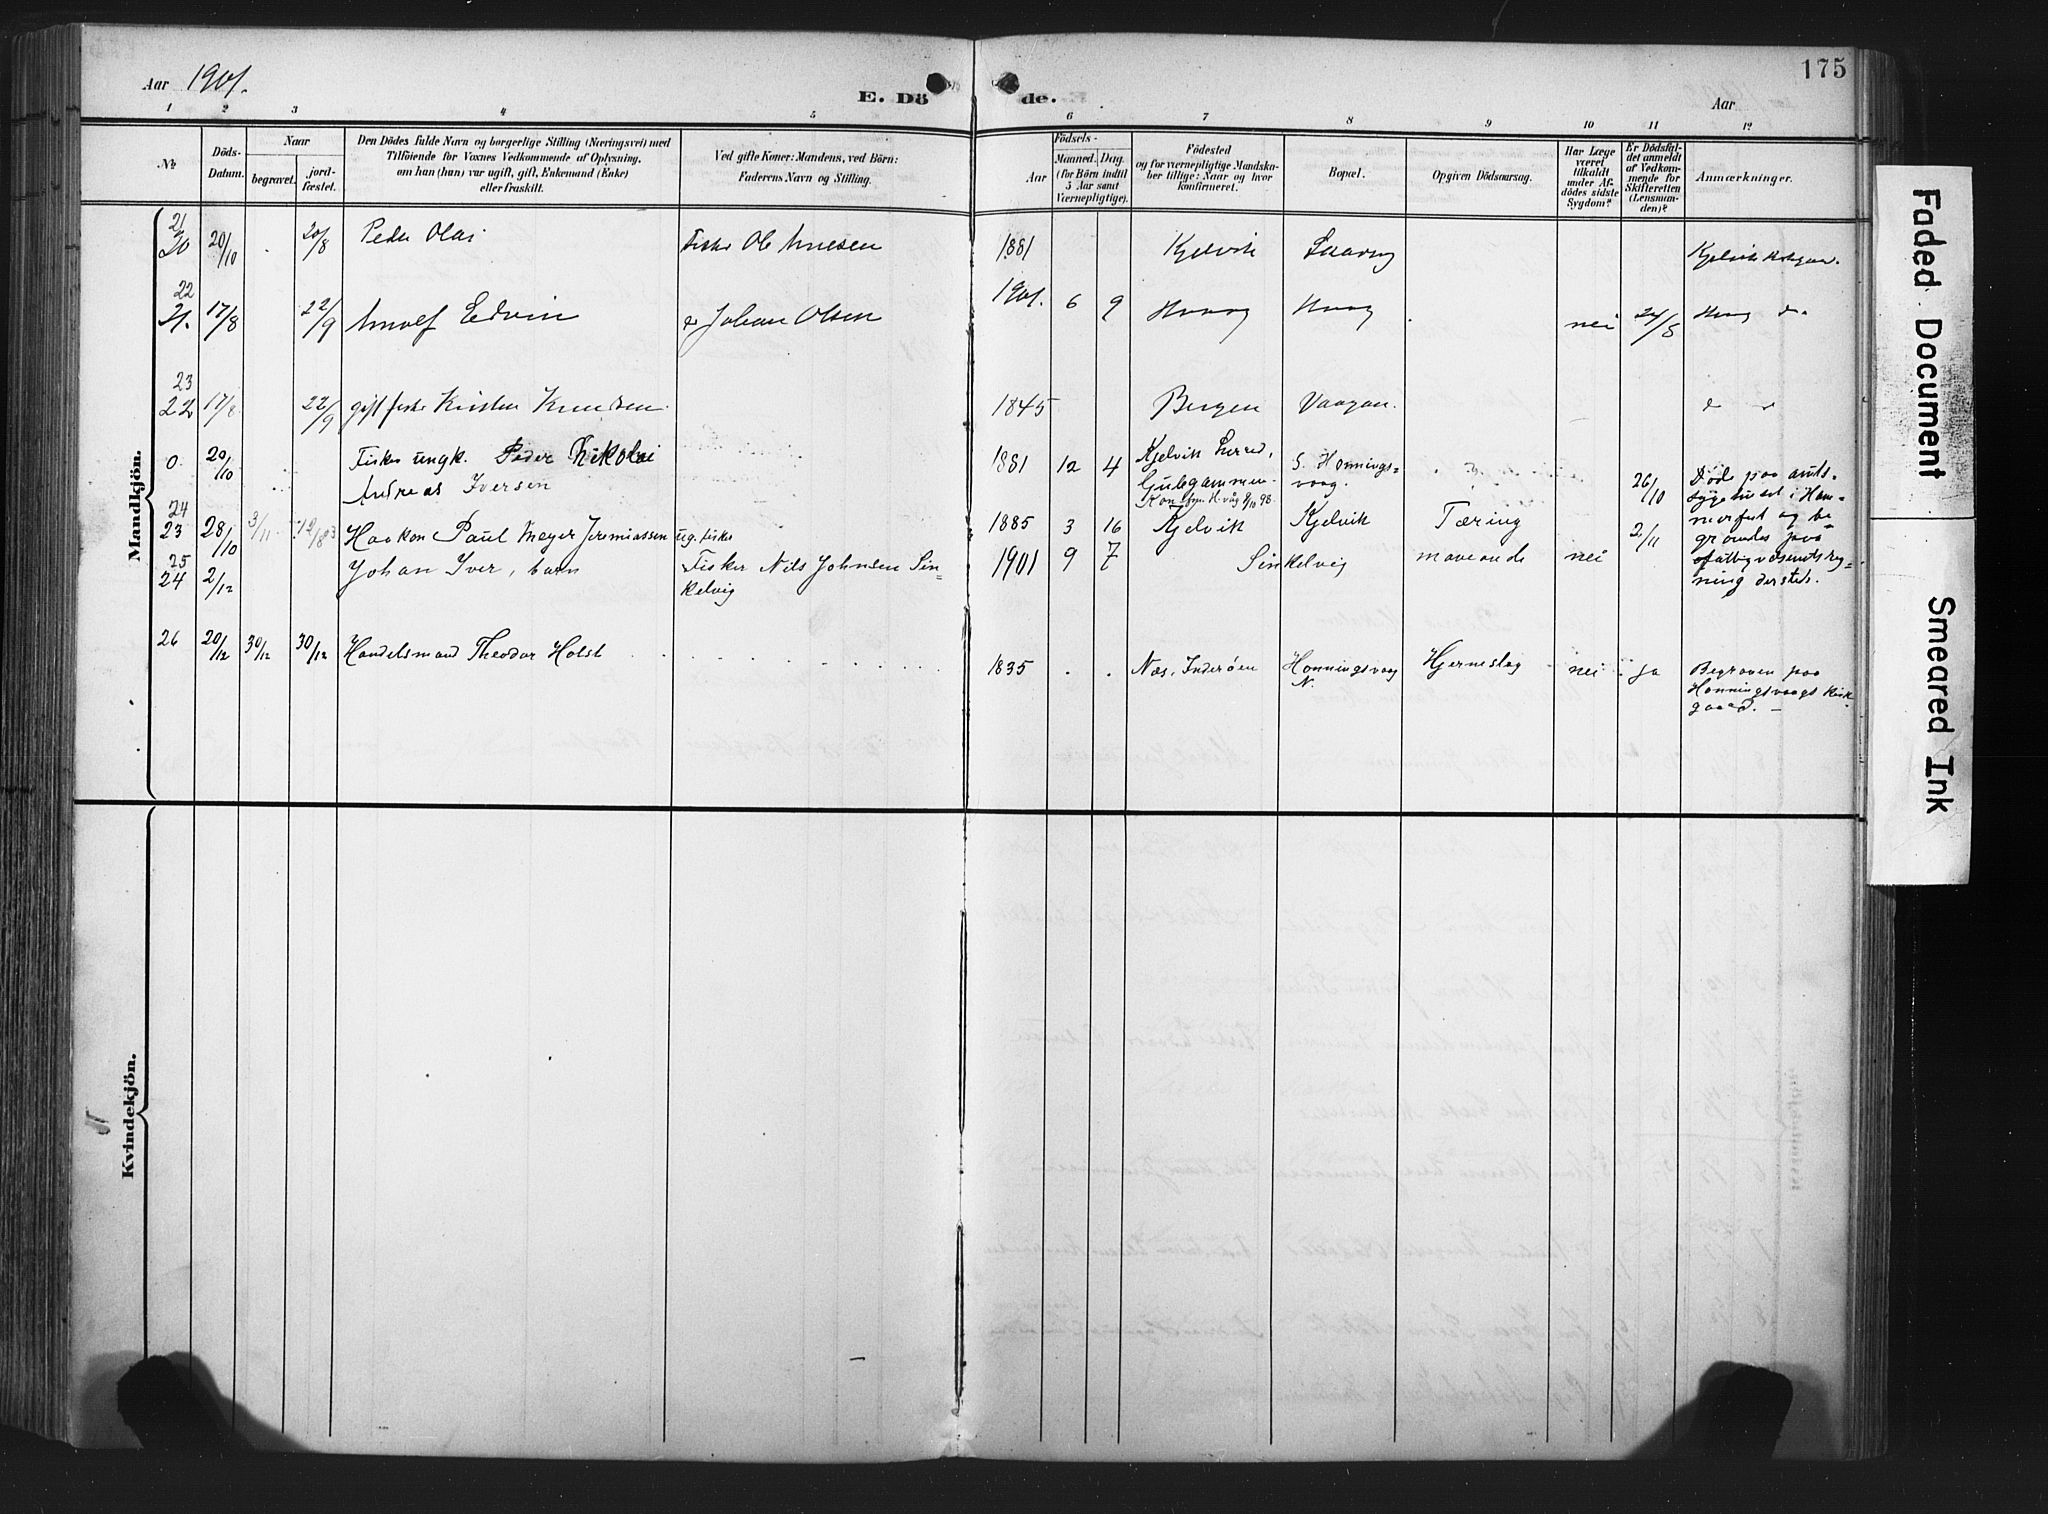 Aar 1901.
E. Dö
de.
175
Aar
1 2 3 4 5 6 7 8 9 10 11 12
№
Döds-
Datum.
Naar
begravet.
jord-
fæstet.
Den Dödes fulde Navn og borgerlige Stilling (Næringsvei) med
Tilföiende for Voxnes Vedkommende af Oplysning,
om han (hun) var ugift, gift, Enkemand (Enke)
eller fraskilt.
Ved gifte Koner: Mandens, ved Börn:
Faderens Navn og Stilling.
Födsels-
Aar
Maaned.
Dag.
(for Börn indtil
5 Aar samt
Værnepligtige).
Födested
og for værnepligtige Mandska-
ber tillige: Naar og hvor
konfirmeret.
Bopæl.
Opgiven Dödsaarsag.
Har Læge
været
tilkaldt
under Af-
dödes sidste
Sygdom?
Er Dödsfal-
det anmeldt
af Vedkom-
mende for
Skifteretten
(Lensman-
den)?
Anmærkninger.
Mandkjön.
21
20 20/10 20/8 Peder Olai Fisker Ole 1881 Kjelvik Kjelvik
22
21. 17/8 22/9 Arnolf Edvin Johan Olsen 1901. 6 9 nei 24/8
23
22 17/8 22/9 gift fisker Kristen Knudsen 1845 Bergen
0 20/10 Fisker ungk. Peder Nikolai 1881 12 4 Kjelvik S. Honnings- 26/10 Døde paa amts-
Andreas Iversen Gulegammen vaag. sygehuset i Ham-
Konf. H.våg 9/10 98. merfest og be-
24
23 28/10 3/11 Haakon Paul Meyer Jeremiassen ug. fisker 1885 3 16 Kjelvik Kjelvik Tæring 2/11 fattigvæsenets reg-
25
24 2/12 Johan Iver, barn Fisker Nils Johnsen Sin- 1901 9 7 Sinkelvig maveonde nei ning dersteds.
kelvig
26 20/12 30/12 30/12 Handelsmand Theodor Holst 1835 Næs, Inderøen Honningsvaag Hjerneslag nei ja Begraven paa
N. Honningsvaags kirk-
gaard.
Kvindekjön.
Faded Document
Smeared Ink